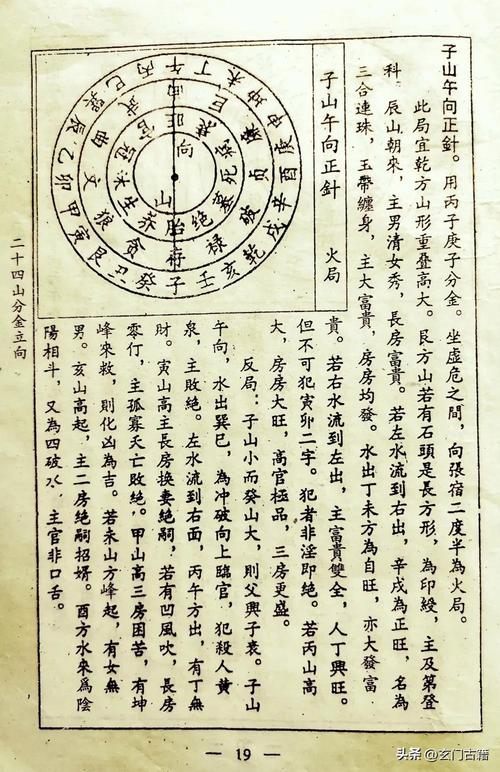 子山午向正針。用丙子庚子分金。坐虛危之間，向張宿二度半為火局。
此局宜乾方山形重叠高大。艮方山若有石頭是長方形，為印綬，主及第登
科。辰山朝來，主男清女秀，長房富貴。若左水流到右出，辛戌為正旺，名為
三合連珠，玉帶纏身，主大富貴，房房均發。水出丁未方為自旺，亦大發富
貴。若右水流到左出，主富貴雙全，人丁興旺。
但不可犯寅卯二字。犯者非淫即絕。若丙山高
大，房房大旺，高官極品，三房更盛。
反局：子山小而癸山大，則父興子衰。子山
午向，水出巽巳，為冲破向上臨官，犯殺人黄
泉，主敗絕。左水流到右面，丙午方出，有丁無
財。寅山高主長房換妻絕嗣，若有凹風吹，長房
零仃，主孤寡夭亡敗絕。甲山高三房困苦，有坤
峰來救，則化凶為吉。若亥山方峰起，有女無
男。亥山高起，主二房絕嗣招婿。酉方水來為陰
陽相斗，又為四破水，主官非口舌。
子山午向正針　火局
午丁未坤申庚酉辛戌乾亥壬子癸丑艮寅甲卯乙辰巽巳丙
武
巨
廉
貞
破
祿
存
貪
狼
文
曲
旺
衰
病
死
墓
絕
胎
养
生
沐
冠
官
向
山
二十四山分金立向
— 19 —
头条 @玄门古籍